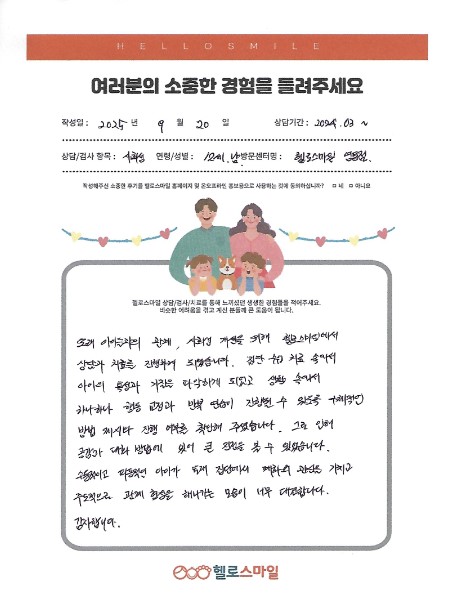 HELLOSMILE
여러분의 소중한 경험을 들려주세요
작성일 : 2025 년 9 월 20 일 상담기간 : 2024. 03 ~
상담/검사 항목 : 사회성 연령/성별 : 12세, 남 방문센터명 : 헬로스마일
작성해주신 소중한 후기를 헬로스마일 홈페이지 및 온오프라인 홍보용으로 사용하는 것에 동의하십니까? □ 네 □ 아니요
헬로스마일 상담/검사/치료를 통해 느끼셨던 생생한 경험들을 적어주세요.
비슷한 어려움을 겪고 계신 분들께 큰 도움이 됩니다.
또래 아이들과의 관계, 사회성 개선을 위해 헬로스마일에서
상담과 치료를 진행하게 되었습니다. 집단 수업 치료 속에서
아이의 특성과 기질을 파악하게 되었고 생활 속에서
하나하나 행동 교정과 반복 연습이 진행될 수 있도록 구체적인
방법 제시와 진행 여부를 확인해 주셨습니다. 그로 인해
공감과 대화 방법에 있어 큰 진전을 볼 수 있었습니다.
수동적이고 아이가 또래 집단에서 관심을 가지고
주도적으로 관계 형성을 해나가는 모습이 너무 대견합니다.
감사합니다.
헬로스마일